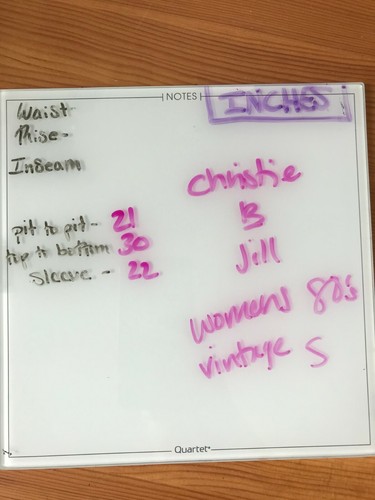 NOTES
INCHES
Waist-
Rise-
Inseam
Christie
B
Jill
pit to pit- 21
top to bottom 30
Sleeve - 22
womens 80s
vintage S
Quartet